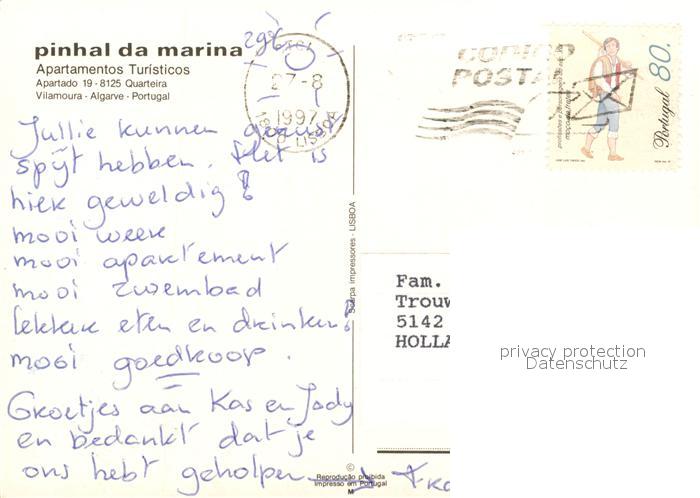 pinhal da marina
Apartamentos Turísticos
Apartado 19 - 8125 Quarteira
Vilamoura - Algarve - Portugal
27-8
1997
LISBOA
CODIGO
POSTAL
80.
Portugal
Jullie kunnen gerust
spijt hebben. Het is
hier geweldig!
mooi weer
mooi apartement
mooi zwembad
lekker eten en drinken!
mooi goedkoop.
Groetjes aan Kas en Jody
en bedankt dat je
ons hebt geholpen
Scarpa impressores - LISBOA
Fam.
Trouw
5142
HOLLA
privacy protection
Datenschutz
©
Reprodução proibida
Impresso em Portugal
M